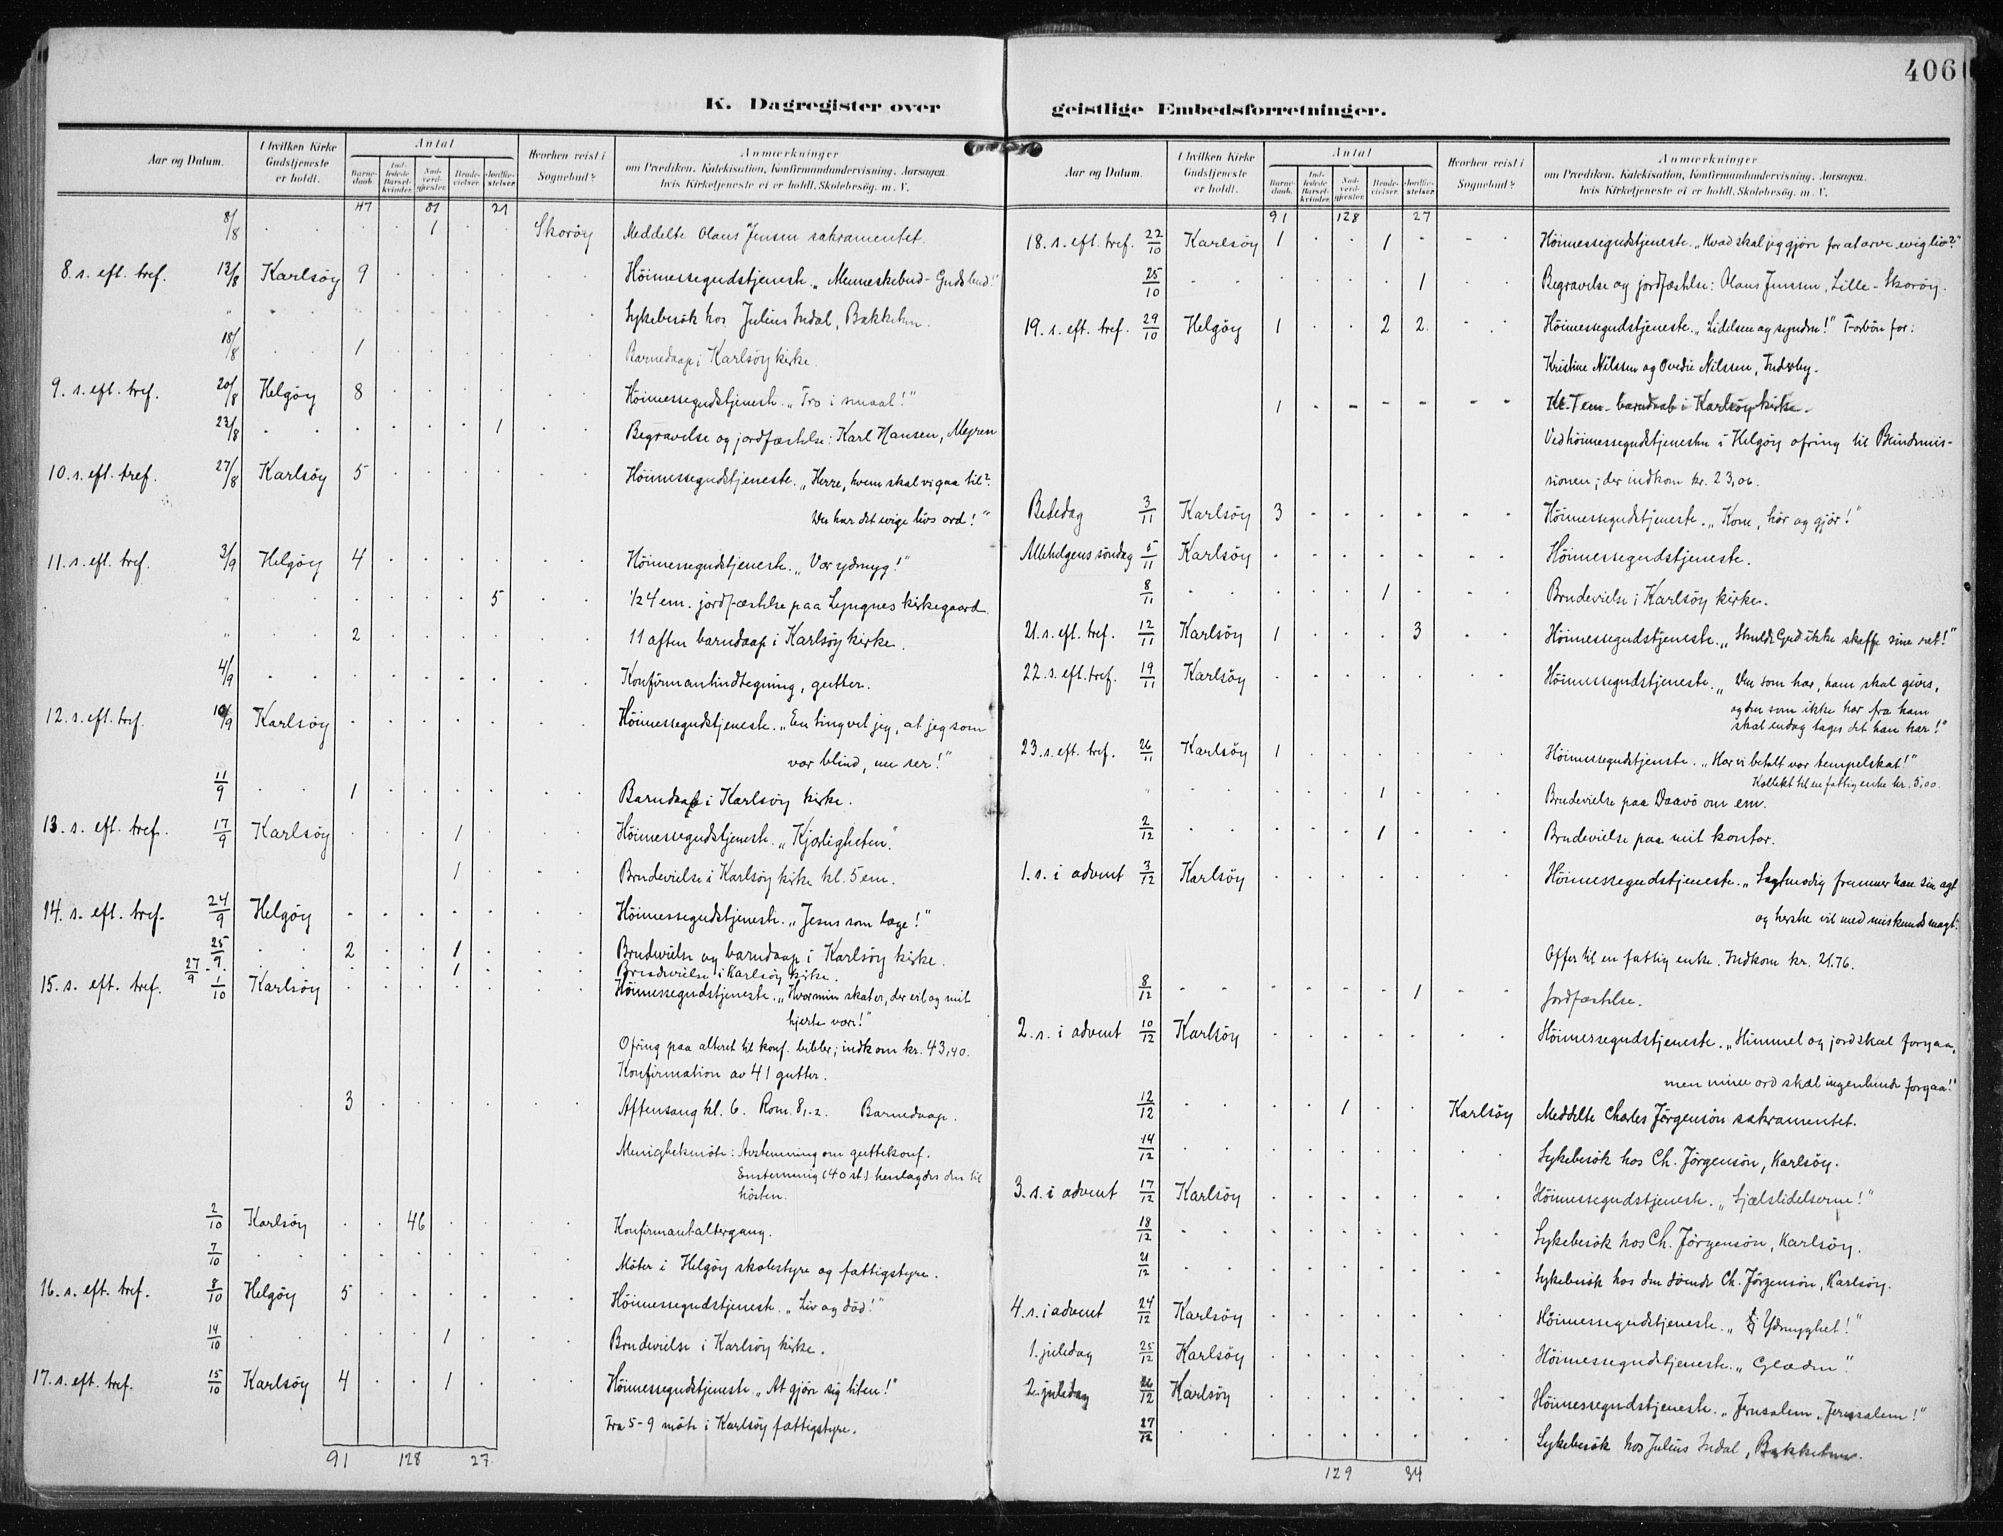 406
K. Dagregister over
Aar og Datum. I hvilken Kirke Gudstjeneste er holdt. Antal Barne-daab. Ind-ledede Barsel-kvinder. Nad-verd-gjester. Brude-vielser. Jordfæ-stelser. Hvorhen reist i Sognebud? Anmærkninger om Prædiken, Katekisation, Konfirmandundervisning, Aarsagen, hvis Kirketjeneste ei er holdt, Skolebesøg, m. V.
47 81 21
8/8 1 Skorøy Meddelte Olaus Jensen sakramentet.
8. s. eft. tref. 13/8 Karlsöy 9 Höimessegudstjeneste. „Menneskebud - Guds bud!"
" Sykebesök hos Julius Indal, Bakkeben.
18/8 1 Barnedaap i Karlsöy kirke.
9. s. eft. tref. 20/8 Helgöy 8 Höimessegudstjeneste. „Tro i smaat!"
23/8 1 Begravelse og jordfæstelse: Karl Hansen, Mejren
10. s. eft. tref. 27/8 Karlsöy 5 Höimessegudstjeneste. „Herre, hvem skal vi gaa til?
Du har det evige livs ord!"
11. s. eft. tref. 3/9 Helgöy 4 Höimessegudstjeneste. „Vær ydmyg!"
" 5 1/2 4 em. jordfæstelse paa Lyngnes kirkegaard.
" 2 11 aften barnedaap i Karlsöy kirke.
4/9 Konfirmantindtegning, gutter.
12. s. eft. tref. 10/9 Karlsöy Höimessegudstjeneste. „En ting vet jeg, at jeg som
var blind, nu ser!"
11/9 1 Barnedaap i Karlsöy kirke.
13. s. eft. tref. 17/9 Karlsöy 1 Höimessegudstjeneste. „Kjærligheten."
1 Brudevielse i Karlsöy kirke kl. 5 em.
14. s. eft. tref. 24/9 Helgöy Höimessegudstjeneste. „Jesus som læge!"
25/9 2 1 Brudevielse og barnedaap i Karlsöy kirke.
27/9 1 Brudevielse i Karlsöy kirke.
15. s. eft. tref. 1/10 Karlsöy Höimessegudstjeneste. „Hvor min skat er, der vil og mit
hjerte være!"
Ofring paa alteret til konf. bibler; indkom kr. 43,40.
Konfirmation av 41 gutter.
3 Aftensang kl. 6. Rom. 8,1-2. Barnedaap.
Menighetsmöte: Avstemning om guttekonf.
Enstemmig (40 st) henlagdes den til
hösten.
2/10 Karlsöy 46 Konfirmantaltergang.
7/10 Möter i Helgöy skolestyre og fattigstyre.
16. s. eft. tref. 8/10 Helgöy 5 Höimessegudstjeneste. „Liv og död!"
14/10 1 Brudevielse i Karlsöy kirke.
17. s. eft. tref. 15/10 Karlsöy 4 1 Höimessegudstjeneste „At gjöre sig liten!"
Fra 5-9 möte i Karlsöy fattigstyre.
91 128 27
geistlige Embedsforretninger.
Aar og Datum. I hvilken Kirke Gudstjeneste er holdt. Antal Barne-daab. Ind-ledede Barsel-kvinder. Nad-verd-gjester. Brude-vielser. Jordfæ-stelser. Hvorhen reist i Sognebud? Anmærkninger om Prædiken, Katekisation, Konfirmandundervisning, Aarsagen, hvis Kirketjeneste ei er holdt, Skolebesøg, m. V.
91 128 27
18. s. eft. tref. 22/10 Karlsöy 1 1 Höimessegudstjeneste. „Hvad skal jeg gjöre for at arve evig liv?"
25/10 1 Begravelse og jordfæstelse: Olaus Jenssen, Lille-Skoröy.
19. s. eft. tref. 29/10 Helgöy 1 2 2 Höimessegudstjeneste. „Lidelsen og synden!" Forbön for:
Kristine Nilssen og Ovedie Nilssen, Inderby.
1 Kl. 7 em. barnedaab i Karlsöy kirke.
Ved höimessegudstjenesten i Helgöy ofring til Blindemis-
sionen; der indkom kr. 23,06.
Bededag 3/11 Karlsöy 3 Höimessegudstjeneste. „Kom, hör og gjör!"
Allehelgens söndag 5/11 Karlsöy Höimessegudstjeneste.
8/11 1 Brudevielse i Karlsöy kirke.
21. s. eft. tref. 12/11 Karlsöy 1 3 Höimessegudstjeneste. „Skulde Gud ikke skaffe sine ret!"
22. s. eft. tref. 19/11 Karlsöy Höimessegudstjeneste. „Den som har, ham skal gives,
og den som ikke har fra ham
skal endog tages det han har!"
23. s. eft. tref. 26/11 Karlsöy 1 Höimessegudstjenste. „Har vi betalt vor tempelskat!"
Kollekt til en fattig enke kr. 5,00.
" 1 Brudevielse paa Daavö om em.
2/12 1 Brudevielse paa mit kontor.
1. s. i advent 3/12 Karlsöy Höimessegudstjeneste. „Sagtmodig fremmer han sin agt
og herske vil med miskunds magt."
Offer til en fattig enke. Indkom kr. 21.76.
8/12 1 Jordfæstelse.
2. s. i advent 10/12 Karlsöy Höimessegudstjeneste. „Himmel og jord skal forgaa,
men mine ord skal ingenlunde forgaa!"
12/12 1 Karlsöy Meddelte Charles Jörgensön sakramentet.
14/12 Sykebesök hos Ch. Jörgensön, Karlsöy.
3. s. i advent 17/12 Karlsöy Höimessegudstjeneste. „Sjælslidelserne!"
18/12 Sykebesök hos Ch. Jörgensön, Karlsöy.
21/12 Sykebesök hos den döende Ch. Jörgensön, Karlsöy.
4. s. i advent 24/12 Karlsöy Höimessegudstjeneste. „Ydmyghet!"
1. juledag 25/12 Karlsöy Höimessegudstjeneste. „Glæden"
2. juledag 26/12 Karlsöy Höimessegudstjeneste. „Jerusalem, Jerusalem!"
27/12 Sykebesök hos Julius Indal, Bakkeben.
129 34